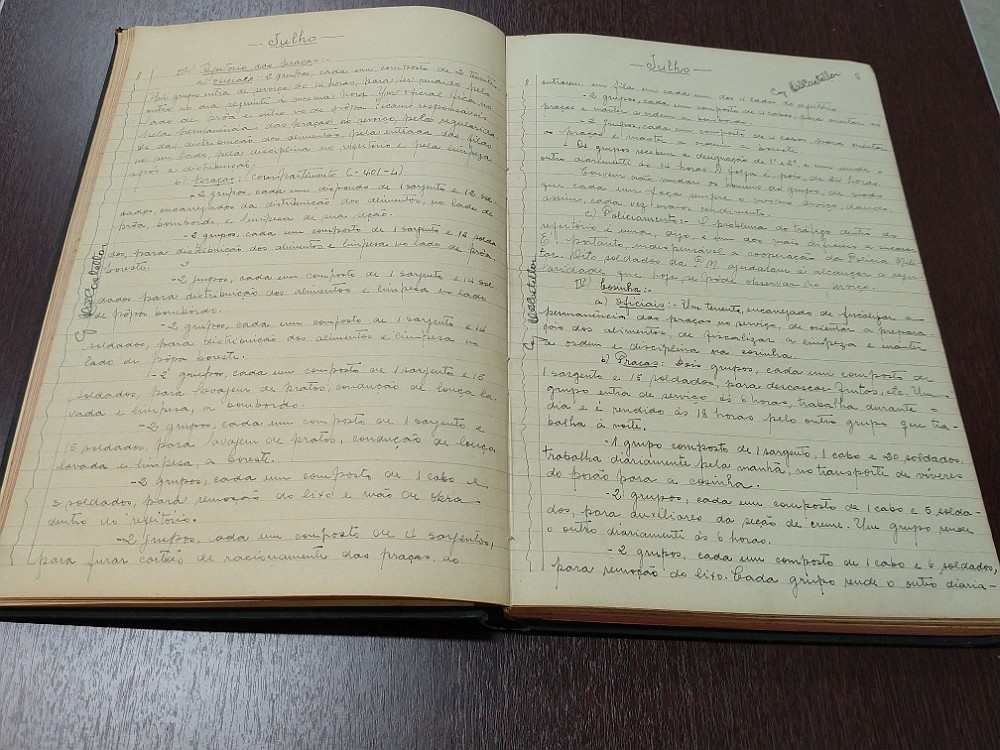 — Julho —
2) Refeitório das praças:-
a) 2 grupos, cada um composto de 2 tenentes.
Um grupo entra de serviço às 12 horas, para ser rendido pelo
outro no dia seguinte à mesma hora. Um oficial fica no
lado de prôa e outro no de pôpa. Ficam responsáveis
pela permanência das praças no serviço, pela regularida-
de da distribuição dos alimentos, pela entrada das filas
no seu lado, pela disciplina no refeitório e pela limpeza
após a distribuição.
b) Praças: Compartimento C-401-L)
-2 grupos, cada um dispondo de 1 sargento e 12 sol-
dados, encarregados da distribuição dos alimentos, no lado de
prôa, bombordo, e limpesa de sua seção.
-2 grupos, cada um composto de 1 sargento e 12 solda-
dos, para distribuição dos alimentos e limpesa no lado de prôa.
boreste.
-2 grupos, cada um composto de 1 sargento e 14 sol
dados para distribuição dos alimentos e limpesa no lado
de pôpa bombordo.
-2 grupos, cada um composto de 1 sargento e 14
soldados, para distribuição dos alimentos e limpesa no
lado de pôpa boreste.
-2 grupos, cada um composto de 1 sargento e 16
soldados, para lavagem de pratos, condução de louça la-
vada e limpesa, a bombordo.
-2 grupos, cada um composto de 1 sargento e
15 soldados, para lavagem de pratos, condução de louça
lavada e limpesa, a boreste.
-2 grupos, cada um composto de 1 cabo e
3 soldados, para remoção do lixo e mão de obra
dentro do refeitório.
-2 grupos, cada um composto de 4 sargentos,
para furar cartão de racionamento das praças, ao
— Julho —
entrarem em fila em cada um dos 4 lados do refeitório.
-2 grupos, cada um composto de 4 cabos, para
praças e manter a ordem a bombordo.
-2 grupos, cada um composto de 4 cabos para
as praças e manter a ordem a boreste.
Os grupos recebem a designação de 1º e 2º, e um rende o
outro diariamente às 12 horas. A folga é, pois, de 24 horas.
Convem não mudar os homens do grupo, de modo
que cada um faça sempre o mesmo serviço, dando
assim, cada vez mais rendimento.
c) Policiamento:- O problema do tráfego dentro do
refeitório é uma, digo, é um dos mais
É portanto, indispensável a cooperação da Polícia Mili-
tar. Oito soldados da P.M. ajudaram a alcançar a regu-
laridade que hoje se pode observar no serviço.
IV) Cosinha:-
a) Oficiais:- Um tenente, encarregado de fiscalizar a
permanência das praças no serviço, de orientar a prepara-
ção dos alimentos, de fiscalizar a limpeza e manter
a ordem e disciplina na cozinha.
b) Praças: Dois grupos, cada um composto de
1 sargento e 15 soldados, para descascar frutas, etc. Um
grupo entra de serviço às 6 horas, trabalha durante o
dia e é rendido às 18 horas pelo outro grupo que tra-
balha à noite.
-1 grupo composto de 1 sargento, 1 cabo e 20 soldados,
trabalha diariamente pela manhã, no transporte de víveres
do porão para a cosinha.
-2 grupos, cada um composto de 1 cabo e 5 solda-
dos, para auxiliares da seção de creme. Um grupo rende
o outro diariamente às 6 horas.
-2 grupos, cada um composto de 1 cabo e 6 soldados,
para remoção do lixo. Cada grupo rende o outro diaria-